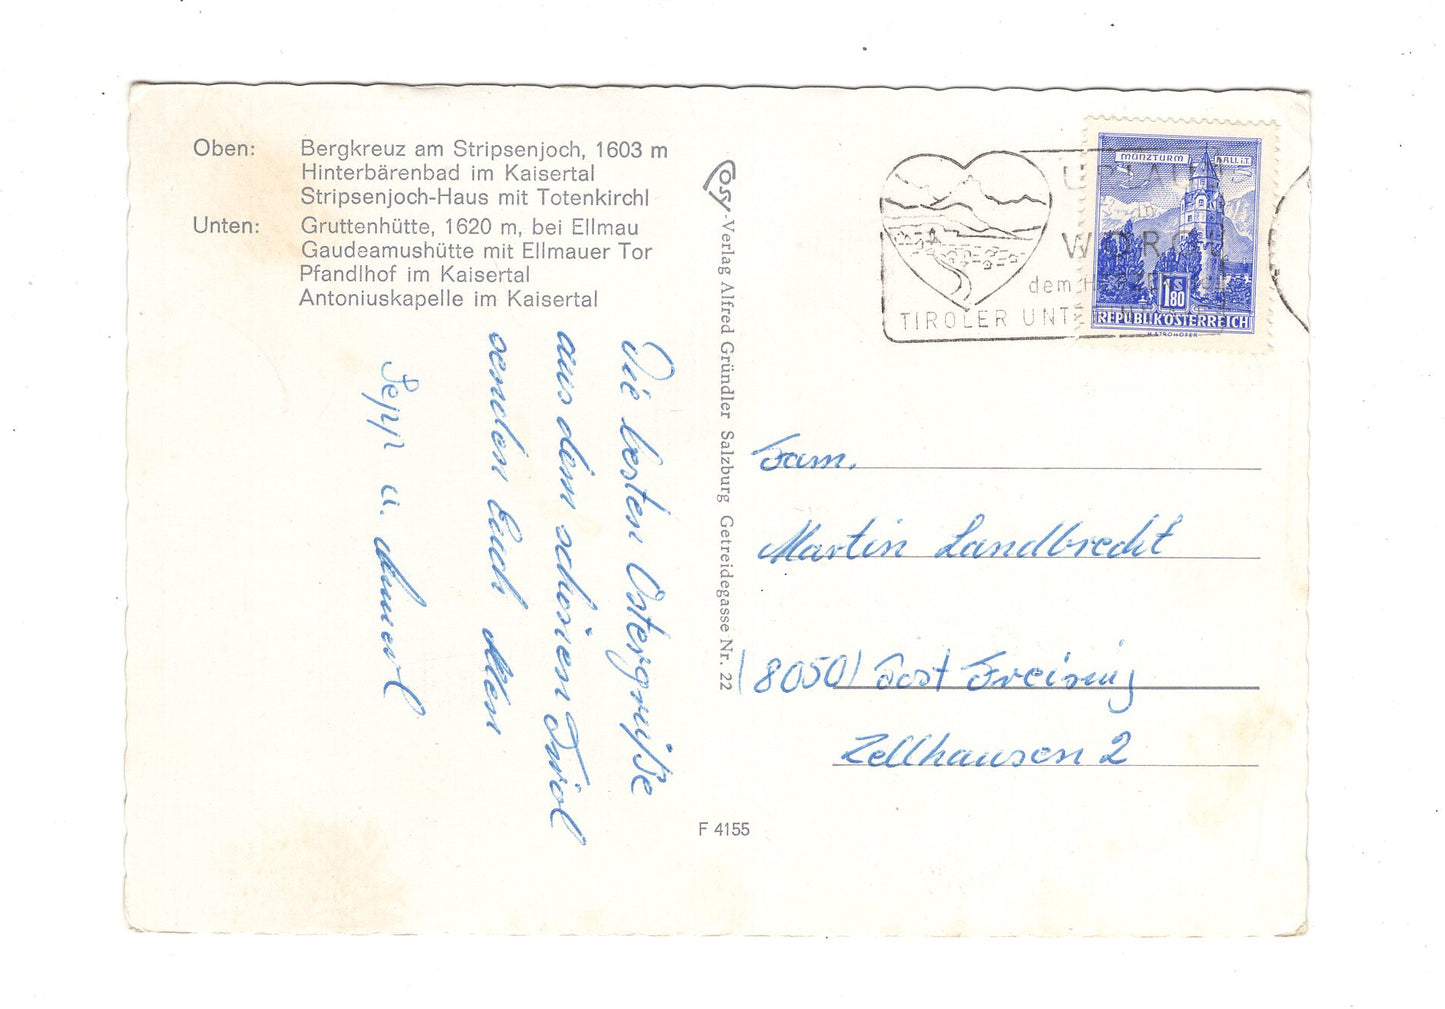 Oben: Bergkreuz am Stripsenjoch, 1603 m
Hinterbärenbad im Kaisertal
Stripsenjoch-Haus mit Totenkirchl
Unten: Gruttenhütte, 1620 m, bei Ellmau
Gaudeamushütte mit Ellmauer Tor
Pfandlhof im Kaisertal
Antoniuskapelle im Kaisertal
Die besten Ostergrüße
aus dem schönen Tirol
senden Euch Allen
Sepp u.
Cosy-Verlag Alfred Gründler Salzburg Getreidegasse Nr. 22
F 4155
URLAUB
in
WÖRGL
dem
TIROLER UNT
MÜNZTURM HALL i.T.
1 S 80
REPUBLIK ÖSTERREICH
H. STROHOFER
Fam.
Martin Landbrecht
(8050) Post Freising
Zellhausen 2